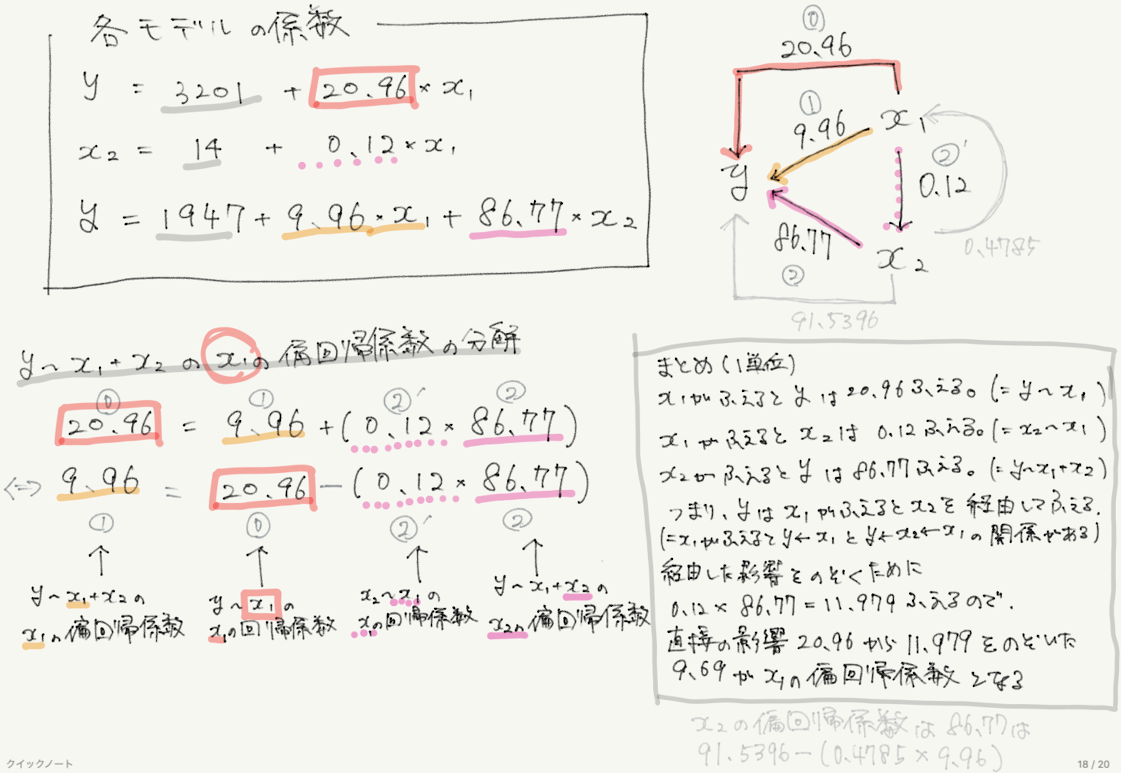 各モデルの係数
y = 3201 + 20.96 * x₁
x₂ = 14 + 0.12 * x₁
y = 1947 + 9.96 * x₁ + 86.77 * x₂
⓪
20.96
①
9.96
x₁
②'
y
0.12
86.77
x₂
0.4785
②
91.5396
y ~ x₁ + x₂ の x₁の偏回帰係数の分解
⓪ ① ②' ②
20.96 = 9.96 + (0.12 * 86.77)
⇔ 9.96 = 20.96 − (0.12 * 86.77)
① ⓪ ②' ②
y ~ x₁ + x₂ の
x₁の偏回帰係数
y ~ x₁ の
x₁の回帰係数
x₂ ~ x₁ の
x₁の回帰係数
y ~ x₁ + x₂ の
x₂の偏回帰係数
まとめ (1単位)
x₁がふえると y は 20.96ふえる。(= y ~ x₁)
x₁がふえると x₂は 0.12ふえる。(= x₂ ~ x₁)
x₂がふえると y は 86.77ふえる。(= y ~ x₁ + x₂)
つまり、y は x₁がふえると x₂を経由してふえる。
(= x₁がふえると y ← x₁ と y ← x₂ ← x₁ の関係がある)
経由した影響をのぞくために
0.12 × 86.77 = 11.979 ふえるので、
直接の影響 20.96 から 11.979 をのぞいた
9.69 が x₁の偏回帰係数となる
x₂の偏回帰係数は 86.77は
91.5396 − (0.4785 × 9.96)
クイックノート
18 / 20